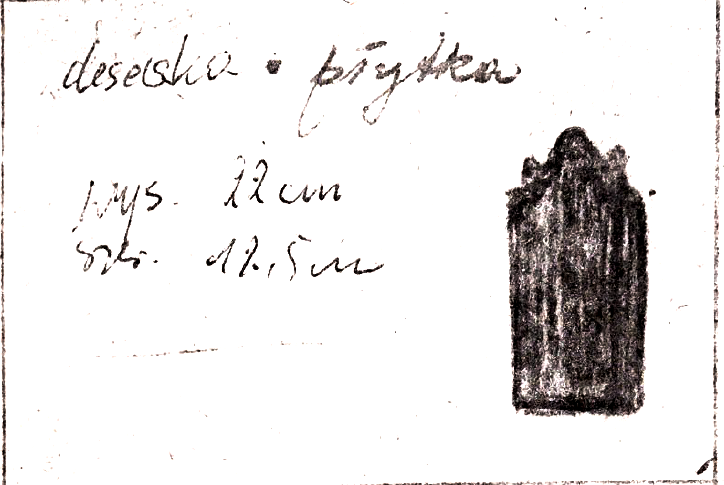 deseczka • płytka
wys. 22 cm
szer. 12,5 cm